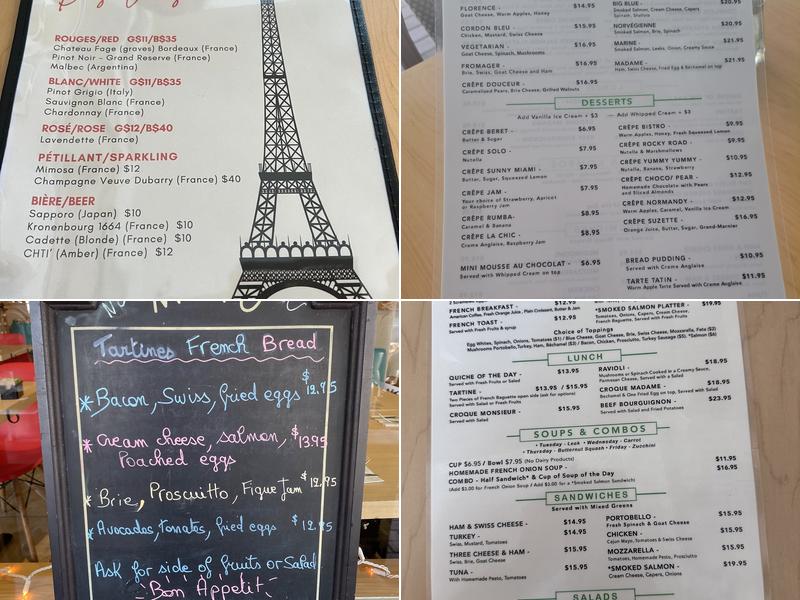 ROUGES/RED G$11/B$35
Chateau Fage (graves) Bordeaux (France)
Pinot Noir - Grand Reserve (France)
Malbec (Argentina)
BLANC/WHITE G$11/B$35
Pinot Grigio (Italy)
Sauvignon Blanc (France)
Chardonnay (France)
ROSÉ/ROSE G$12/B$40
Lavendette (France)
PÉTILLANT/SPARKLING
Mimosa (France) $12
Champagne Veuve Dubarry (France) $40
BIÈRE/BEER
Sapporo (Japan) $10
Kronenbourg 1664 (France) $10
Cadette (Blonde) (France) $10
CHTI' (Amber) (France) $12
FLORENCE - $14.95
Goat Cheese, Warm Apples, Honey
CORDON BLEU - $15.95
Chicken, Mustard, Swiss Cheese
VEGETARIAN - $16.95
Goat Cheese, Spinach, Mushrooms
FROMAGER - $16.95
Brie, Swiss, Goat Cheese and Ham
CRÊPE DOUCEUR - $16.95
Caramelized Pears, Brie Cheese, Grilled Walnuts
BIG BLUE - $20.95
Smoked Salmon, Cream Cheese, Capers
Spinach, Shallots
NORVÉGIENNE $20.95
Smoked Salmon, Brie, Spinach
MARINE - $21.95
Smoked Salmon, Leeks, Onion, Creamy Sauce
MADAME - $21.95
Ham, Swiss Cheese, Fried Egg & Béchamel on top
DESSERTS
Add Vanilla Ice Cream + $3 Add Whipped Cream + $3
CRÊPE BERET - $6.95
Butter & Sugar
CRÊPE SOLO - $7.95
Nutella
CRÊPE SUNNY MIAMI - $7.95
Butter, Sugar, Squeezed Lemon
CRÊPE JAM - $7.95
Your choice of Strawberry, Apricot
or Raspberry Jam
CRÊPE RUMBA- $8.95
Caramel & Banana
CRÊPE LA CHIC - $8.95
Creme Anglaise, Raspberry Jam
MINI MOUSSE AU CHOCOLAT - $6.95
Served with Whipped Cream on top
CRÊPE BISTRO - $9.95
Warm Apples, Honey, Fresh Squeezed Lemon
CRÊPE ROCKY ROAD - $9.95
Nutella & Marshmallows
CRÊPE YUMMY YUMMY - $10.95
Nutella, Banana, Strawberry
CRÊPE CHOCO/ PEAR - $12.95
Homemade Chocolate with Pears
and Sliced Almonds
CRÊPE NORMANDY - $12.95
Warm Apples, Caramel, Vanilla Ice Cream
CRÊPE SUZETTE - $16.95
Orange Juice, Butter, Sugar, Grand-Marnier
BREAD PUDDING - $10.95
Served with Creme Anglaise
TARTE TATIN - $11.95
Warm Apple Tarte Served with Creme Anglaise
Tartines French Bread
*Bacon, Swiss, fried eggs $12.95
*Cream cheese, salmon, $13.95
Poached eggs
*Brie, Proscuitto, Figue Jam $12.95
*Avocados, tomatoes, fried eggs $12.95
Ask for side of fruits or Salad
- Bon Appetit -
FRENCH BREAKFAST - $12.95
American Coffee, Fresh Orange Juice, Plain Croissant, Butter & Jam
FRENCH TOAST - $12.95
Served with Fresh Fruits & syrup
*SMOKED SALMON PLATTER - $19.95
Tomatoes, Onions, Capers, Cream Cheese,
French Baguette, Served with Fresh Fruits
Choice of Toppings
Egg Whites, Spinach, Onions, Tomatoes ($1) / Blue Cheese, Goat Cheese, Brie, Swiss Cheese, Mozzarella, Feta ($2)
Mushrooms Portobello, Turkey, Ham, Béchamel ($3) / Bacon, Chicken, Prosciutto, Turkey Sausage ($5). *Salmon ($6)
LUNCH
QUICHE OF THE DAY - $13.95
Served with Fresh Fruits or Salad
TARTINE - $13.95 / $15.95
Two Pieces of French Baguette open side (ask for options)
Served with Salad or Fresh Fruits
CROQUE MONSIEUR - $15.95
Served with Salad
RAVIOLI - $18.95
Mushrooms or Spinach Cooked in a Creamy Sauce,
Parmesan Cheese, Served with a Salad
CROQUE MADAME - $18.95
Bechamel & One Fried Egg on top, Served with Salad
BEEF BOURGUIGNON - $23.95
Served with Salad and Fried Potatoes
SOUPS & COMBOS
• Tuesday - Leek • Wednesday - Carrot
• Thursday - Butternut Squash • Friday - Zucchini
CUP $6.95 / Bowl $7.95 (No Dairy Products)
HOMEMADE FRENCH ONION SOUP - $11.95
COMBO - Half Sandwich* & Cup of Soup of the Day $16.95
(Add $3.00 for French Onion Soup / Add $3.00 for a *Smoked Salmon Sandwich)
SANDWICHES
Served with Mixed Greens
HAM & SWISS CHEESE - $14.95
TURKEY - $14.95
Swiss, Mustard, Tomatoes
THREE CHEESE & HAM - $15.95
Swiss, Brie, Goat Cheese
TUNA - $15.95
With Homemade Pesto, Tomatoes
PORTOBELLO - $15.95
Fresh Spinach & Goat Cheese
CHICKEN - $15.95
Cajun Mayo, Tomatoes & Swiss Cheese
MOZZARELLA - $15.95
Tomatoes, Homemade Pesto, Prosciutto
*SMOKED SALMON - $19.95
Cream Cheese, Capers, Onions
SALADS